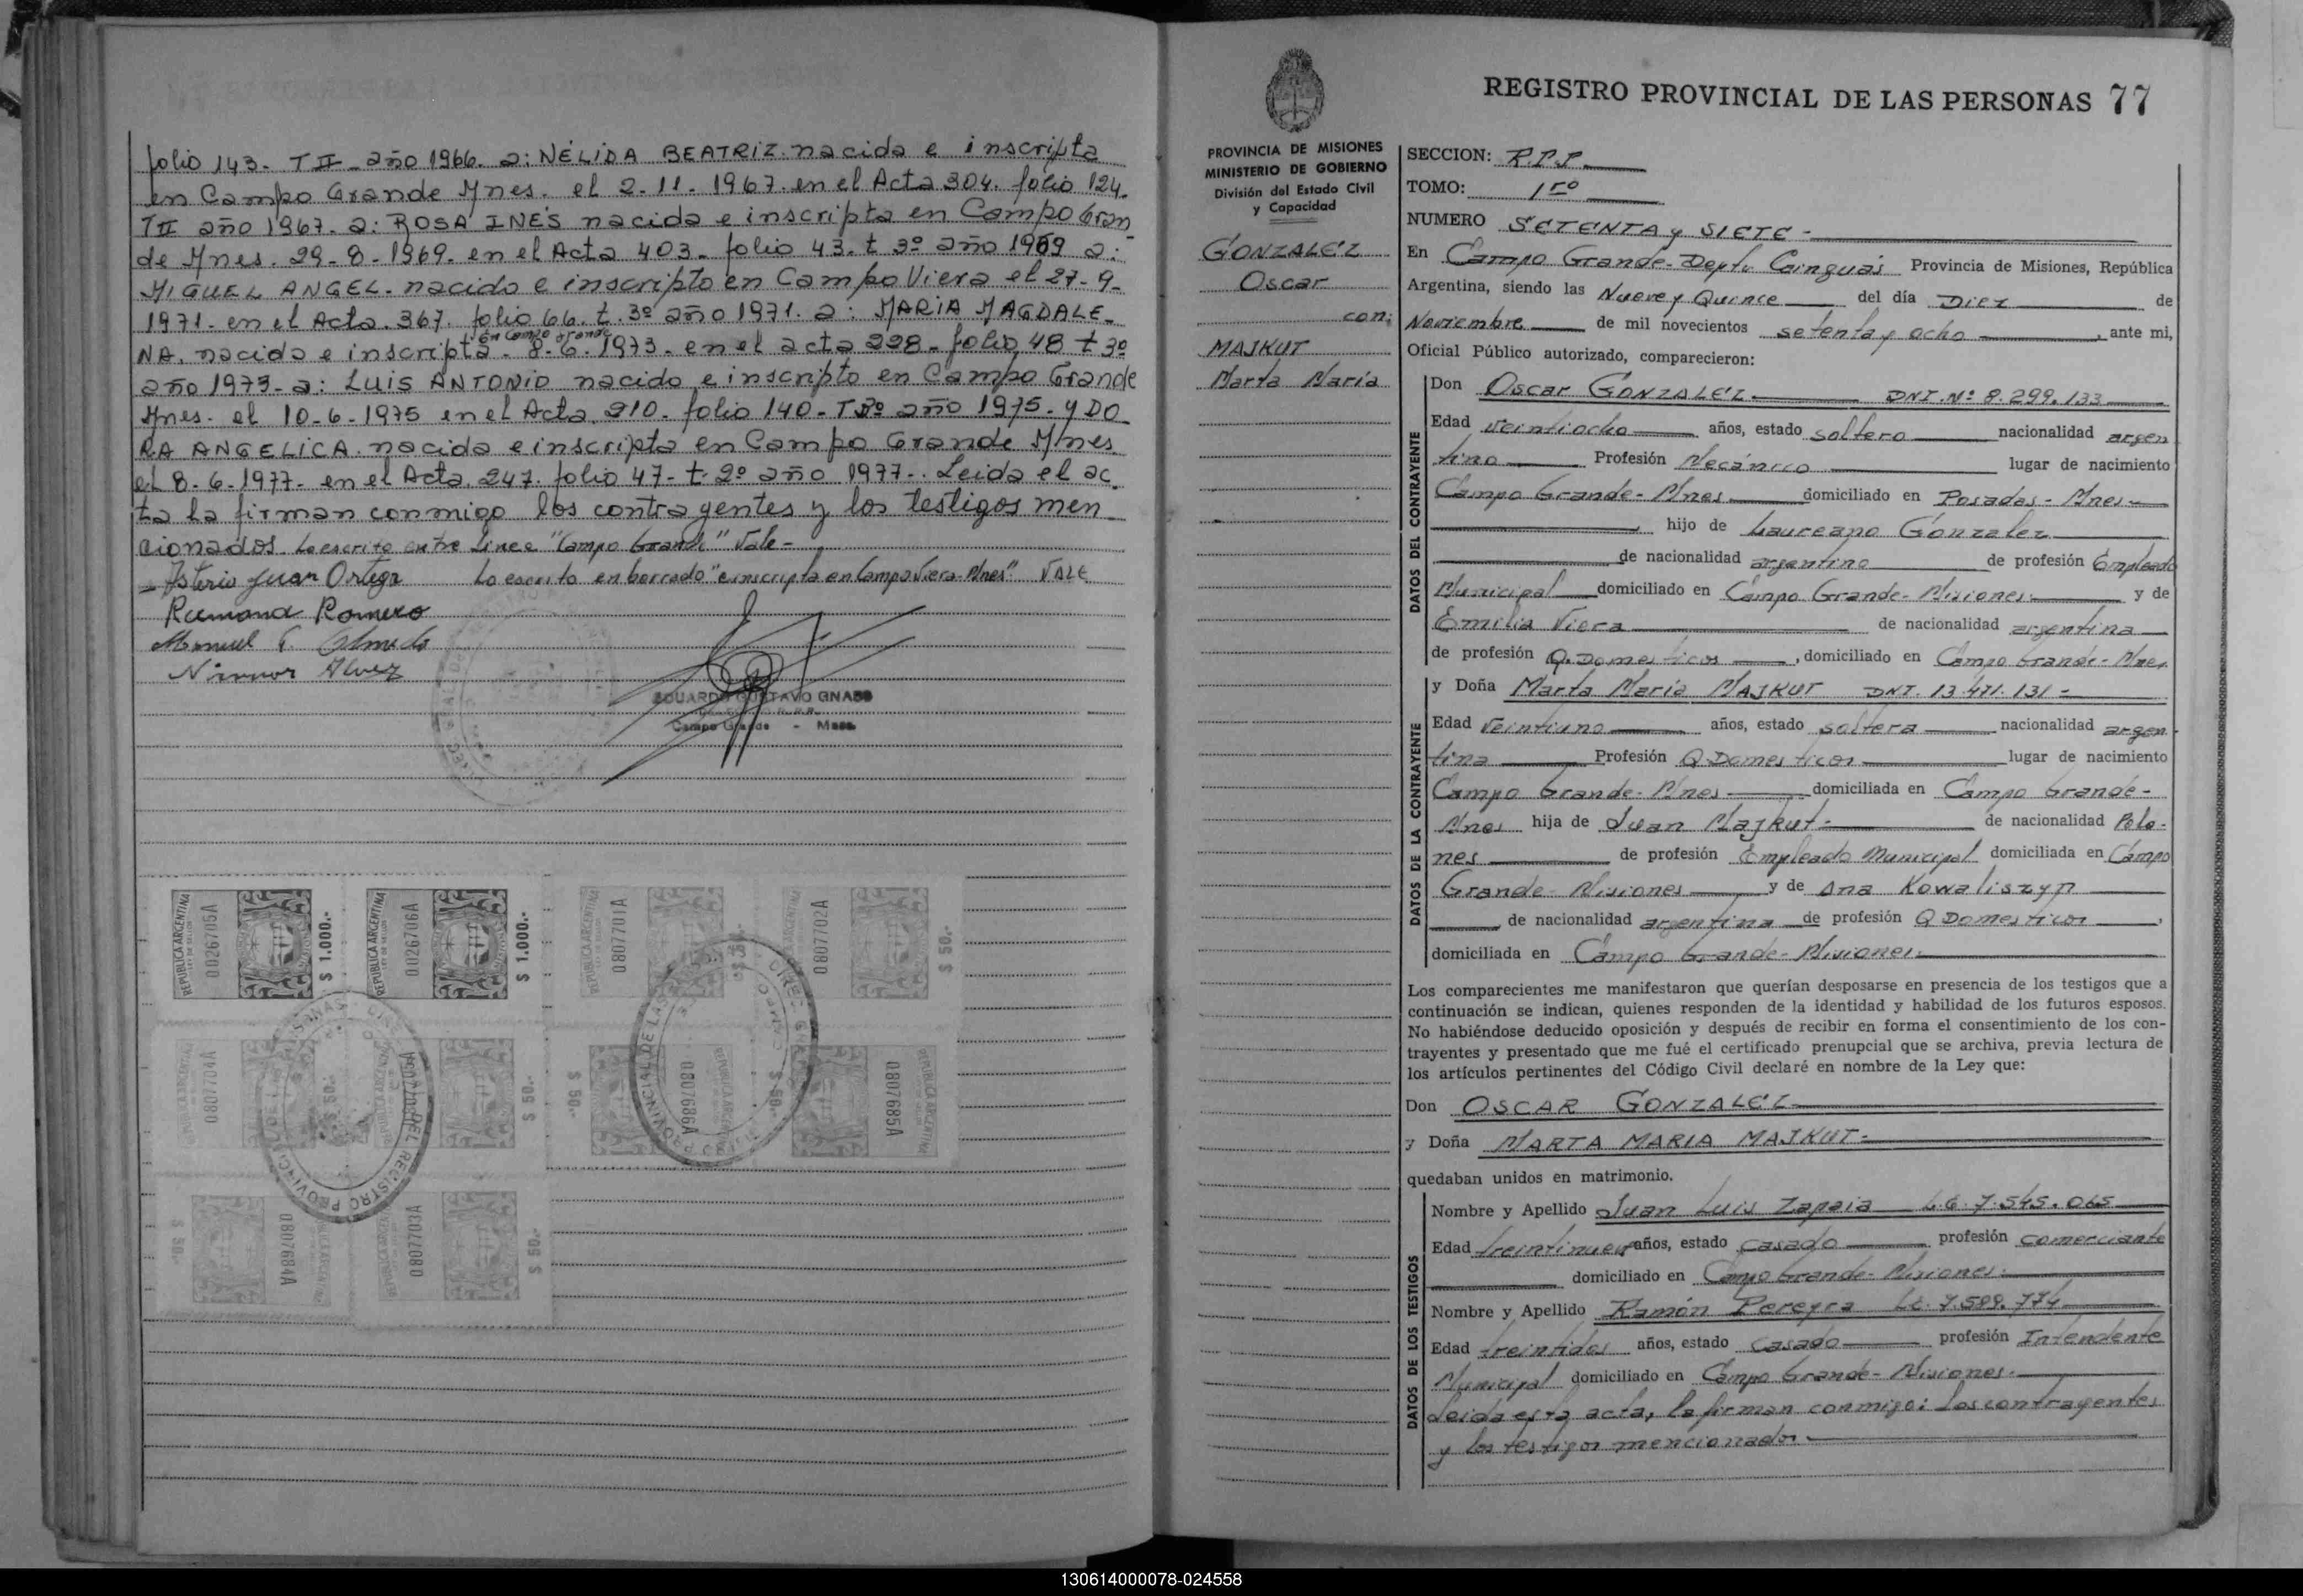 folio 143. TII año 1966. a: NÉLIDA BEATRIZ. nacida e inscripta
en Campo Grande Mnes. el 2-11-1967. en el Acta 304. folio 124.
TII año 1967. a: ROSA INÉS nacida e inscripta en Campo Gran
de Mnes. 29-8-1969. en el Acta 403. folio 43. t 3º año 1969 a:
MIGUEL ANGEL. nacido e inscripto en Campo Viera el 27-9-
1971. en el Acta. 367. folio 66. t. 3º año 1971. a: MARIA MAGDALE-
en Campo Grande
NA. nacida e inscripta. 8-6-1973. en el acta 228. folio 48 t 3º
año 1973- a: LUIS ANTONIO nacido e inscripto en Campo Grande
Mnes. el 10-6-1975 en el Acta 210. folio 140- T 2º año 1975. y DO
RA ANGELICA. nacida e inscripta en Campo Grande Mnes.
el 8-6-1977- en el Acta. 247. folio 47- t- 2º año 1977-. Leida el ac
ta la firman conmigo los contragentes y los testigos men
cionados. Lo escrito entre Linea "Campo Grande" Vale-
Asterio Juan Ortega Lo escrito en borrado "e inscripta en Campo Viera-Mnes". VALE
Ramona Romero
Manuel Olmedo
Nicanor Alvez
EDUARDO GUSTAVO GNASS
Campo Grande - Mnes.
REPUBLICA ARGENTINA 0026705A $ 1.000.-
REPUBLICA ARGENTINA 0026706A $ 1.000.-
REPUBLICA ARGENTINA 0807701A $ 50.-
REPUBLICA ARGENTINA 0807702A $ 50.-
REPUBLICA ARGENTINA 0807704A $ 50.-
REPUBLICA ARGENTINA 0807705A $ 50.-
REPUBLICA ARGENTINA 0807686A $ 50.-
REPUBLICA ARGENTINA 0807685A $ 50.-
REPUBLICA ARGENTINA 0807684A $ 50.-
REPUBLICA ARGENTINA 0807703A $ 50.-
REGISTRO PROVINCIAL DE LAS PERSONAS 77
PROVINCIA DE MISIONES
MINISTERIO DE GOBIERNO
División del Estado Civil
y Capacidad
GONZALEZ
Oscar
con:
MAJKUT
Marta María
SECCION: R.P.P.
TOMO: 1ro
NUMERO SETENTA y SIETE-
En Campo Grande-Depto Cainguás Provincia de Misiones, República
Argentina, siendo las Nueve y Quince del día Diez de
Noviembre de mil novecientos setenta y ocho, ante mi,
Oficial Público autorizado, comparecieron:
DATOS DEL CONTRAYENTE
Don Oscar GONZALEZ DNI. Nº 8.299.133
Edad Veintiocho años, estado soltero nacionalidad argen
tino Profesión Mecánico lugar de nacimiento
Campo Grande-Mnes domiciliado en Posadas-Mnes
, hijo de Laureano Gonzalez
de nacionalidad argentina de profesión Empleado
Municipal domiciliado en Campo Grande-Misiones y de
Emilia Viera de nacionalidad argentina
de profesión Q.Domesticos, domiciliado en Campo Grande-Mnes
DATOS DE LA CONTRAYENTE
y Doña Marta María MAJKUT DNI. 13.471.131-
Edad Veintiuno años, estado soltera nacionalidad argen
tina Profesión Q.Domesticos lugar de nacimiento
Campo Grande-Mnes domiciliada en Campo Grande-
Mnes hija de Juan Majkut- de nacionalidad Polo-
nes de profesión Empleado Municipal domiciliada en Campo
Grande-Misiones y de Ana Kowaliszyn
de nacionalidad argentina de profesión Q Domesticos,
domiciliada en Campo Grande-Misiones
Los comparecientes me manifestaron que querían desposarse en presencia de los testigos que a
continuación se indican, quienes responden de la identidad y habilidad de los futuros esposos.
No habiéndose deducido oposición y después de recibir en forma el consentimiento de los con-
trayentes y presentado que me fué el certificado prenupcial que se archiva, previa lectura de
los artículos pertinentes del Código Civil declaré en nombre de la Ley que:
Don OSCAR GONZALEZ
y Doña MARTA MARIA MAJKUT-
quedaban unidos en matrimonio.
DATOS DE LOS TESTIGOS
Nombre y Apellido Juan Luis Zapaia L.E. 7.545.065
Edad treintinueve años, estado casado profesión comerciante
domiciliado en Campo Grande-Misiones.
Nombre y Apellido Ramón Pereyra LE. 7.589.774
Edad treintidos años, estado casado profesión Intendente
Municipal domiciliado en Campo Grande-Misiones.
Leida esta acta, la firman conmigo: Los contragentes
y los testigos mencionados
130614000078-024558